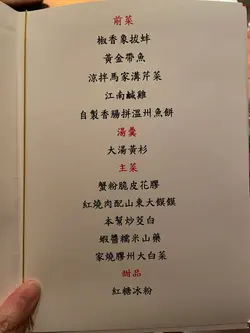 前菜
椒香象拔蚌
黃金帶魚
涼拌馬家溝芹菜
江南鹹雞
自製香腸拼溫州魚餅
湯羹
大湯黃衫
主菜
蟹粉脆皮花膠
紅燒肉配山東大饃饃
本幫炒茭白
蝦醬糯米山藥
家燒膠州大白菜
甜品
紅糖冰粉